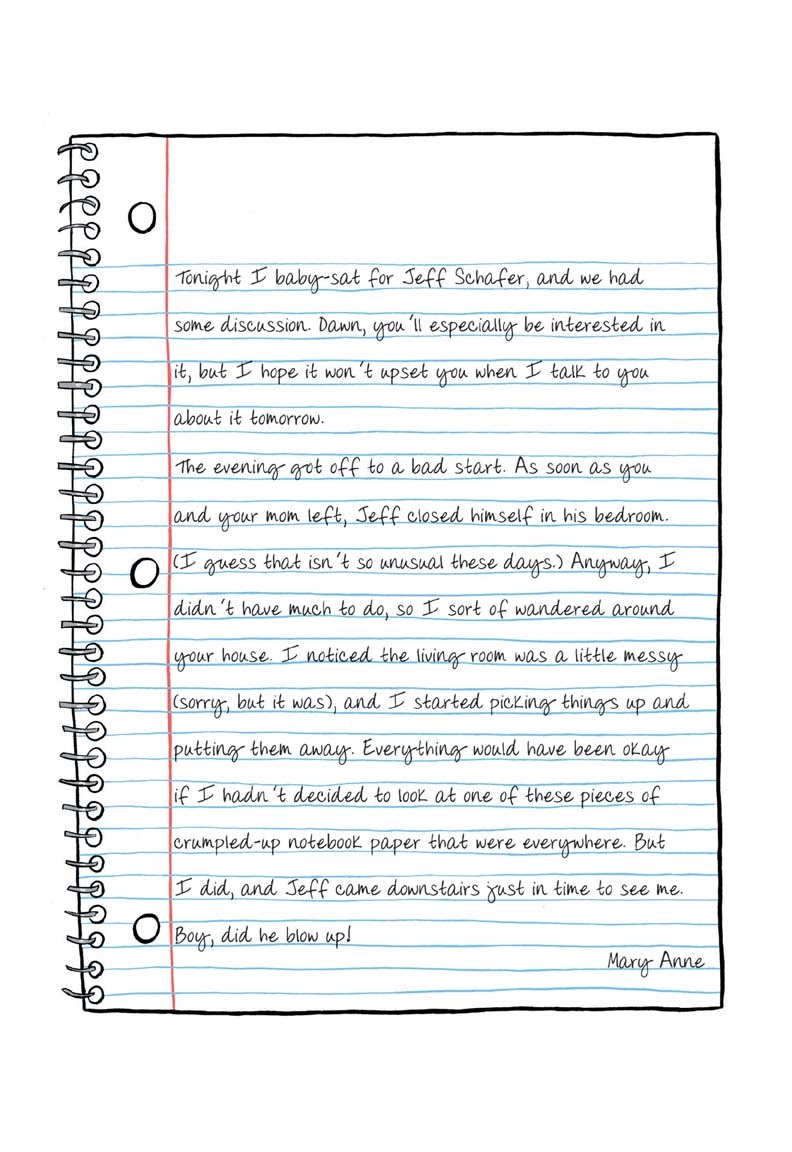 Tonight I baby-sat for Jeff Schafer, and we had
some discussion. Dawn, you'll especially be interested in
it, but I hope it won't upset you when I talk to you
about it tomorrow.
The evening got off to a bad start. As soon as you
and your mom left, Jeff closed himself in his bedroom.
(I guess that isn't so unusual these days.) Anyway, I
didn't have much to do, so I sort of wandered around
your house. I noticed the living room was a little messy
(sorry, but it was), and I started picking things up and
putting them away. Everything would have been okay
if I hadn't decided to look at one of these pieces of
crumpled-up notebook paper that were everywhere. But
I did, and Jeff came downstairs just in time to see me.
Boy, did he blow up!
Mary Anne